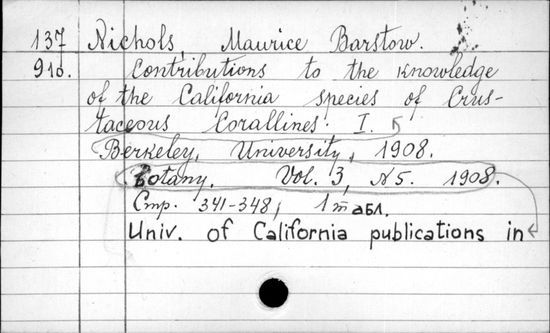 137 Nichols, Maurice Barstow.
910. Contributions to the knowledge
of the California species of Crus-
taceous Corallines. I.
Berkeley, University, 1908.
Botany. Vol. 3, N5. 1908.
Стр. 341-348, 1 табл.
Univ. of California publications in